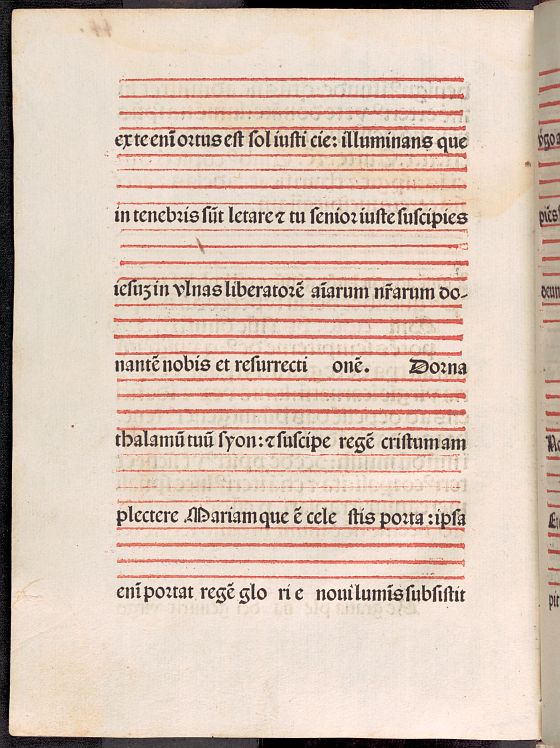 ex te eni̅ ortus est sol iusti cie: illuminans que
in tenebris su̅t letare ⁊ tu senior iuste suscipies
iesuʒ in vlnas liberatore̅ ai̅arum nr̅arum do-
nante̅ nobis et resurrecti one̅. Dorna
thalamu̅ tuu̅ syon: ⁊ suscipe rege̅ cristum am
plectere Mariam que e̅ cele stis porta: ipsa
eni̅ portat rege̅ glo ri e noui lumi̅s subsistit